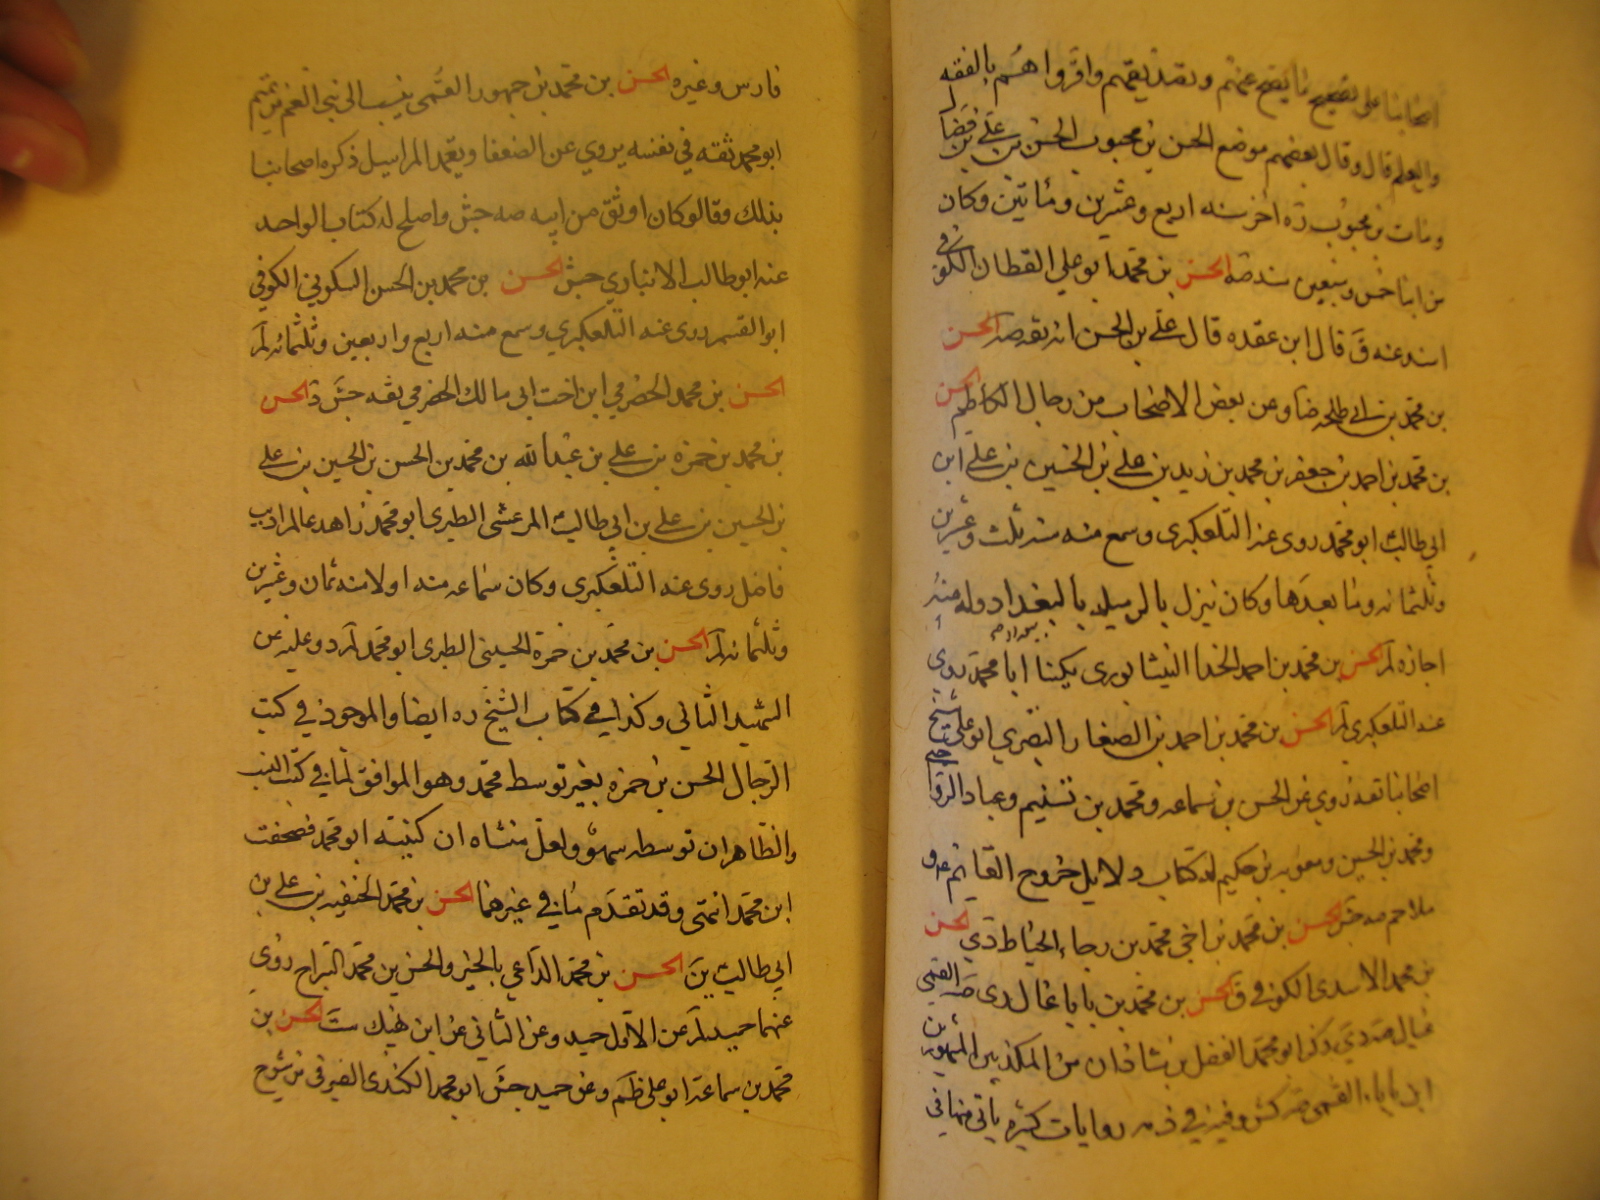 اصحابنا على تصحيح ما يصح عنهم وتصديقهم واقروا لهم بالفقه
والعلم قال وقال بعضهم موضع الحسن بن محبوب الحسن بن علي بن فضال
ومات بن محبوب ره اخر سنه اربع وعشرين ومأتين وكان
من ابنا خمس وسبعين سنه صه الحسن بن محمد ابو علي القطان الكوفي
اسند عنه ق قال ابن عقده قال علي بن الحسن انه ثقه صه الحسن
بن محمد بن ابي طلحه ضا وعن بعض الاصحاب من رجال الكاظم الحسن
بن محمد بن احمد بن جعفر بن محمد بن زيد بن علي بن الحسين بن علي ابن
ابي طالب ابو محمد روى عنه التلعكبري وسمع منه سنه ثلث وعشرين
وثلثمائه وما بعدها وكان ينزل بالرميله بالبغداد وله منه
اجازه لم الحسن بن محمد بن احمد الحذا النيشابوري يكنا ابا محمد روى
عنه التلعكبري لم الحسن بن محمد بن احمد بن الصفار البصري ابو علي شيخ
اصحابنا ثقه روى عن الحسن بن سماعه ومحمد بن تسنيم وعباد الرواجنى
ومحمد بن الحسين ومعويه بن حكيم له كتاب دلايل خروج القائم عه و
ملاحم صه جش الحسن بن محمد بن اخي محمد بن رجاء الخياط دي الحسن
بن محمد الاسدى الكوفي ق الحسن بن محمد بن بابا غال دى صه القمي
غال صه دي ذكر ابو محمد الفضل بن شاذان من المكذبين المشهورين
ابن بابا القمى صه كش وفيه في ذمه روايات كثيره ياتي منها في
فارس وغيره الحسن بن محمد بن جمهور القمى ينسب الى بني العم من تميم
ابو محمد ثقه في نفسه يروي عن الضعفا ويعتمد المراسيل ذكره اصحابنا
بذلك وقالو كان اوثق من ابيه صه جش واصلح له كتاب الواحد
عنه ابو طالب الانباري جش الحسن بن محمد بن الحسن السكوني الكوفي
ابو القسم روى عنه التلعكبري وسمع منه اربع واربعين وثلثمائه لم
الحسن بن محمد الحضرمي ابن اخت ابي مالك الحضرمي ثقه جش د الحسن
بن محمد بن حمزه بن علي بن عبد الله بن محمد بن الحسن بن الحسين بن علي
بن الحسين بن علي بن ابي طالب المرعشى الطبرى ابو محمد زاهد عالم اديب
فاضل روى عنه التلعكبرى وكان سماعه منه اولا سنه ثمان وعشرين
وثلثمائه لم الحسن بن محمد بن حمزة الحسينى الطبرى ابو محمد لم د وعليه عن
الشهيد الثاني وكذا في كتاب الشيخ ره ايضا والموجود في كتب
الرجال الحسن بن حمزه بغير توسط محمد وهو الموافق لما في كتب النسب
والظاهر ان توسطه سهو ولعل منشاه ان كنيته ابو محمد فصحفت
ابن محمد انتهى وقد تقدم ما في غيرهما الحسن بن محمد الحنفيه بن علي بن
ابي طالب ين الحسن بن محمد الداعي بالخير والحسن بن محمد السراج روى
عنهما حميد لم عن الاول حيد وعن الثاني عن ابن نهيك ست الحسن بن
محمد بن سماعة ابو على ظم وعن حميد جش ابو محمد الكندى الصيرفى من شيوخ